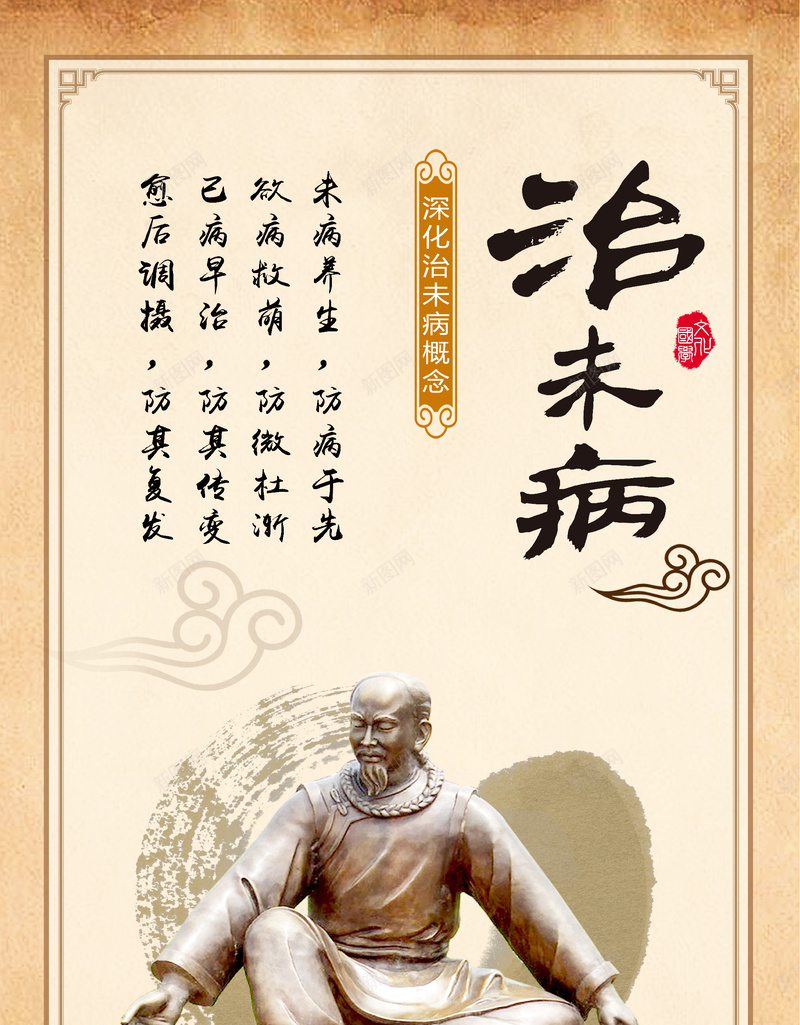 治未病
文化
國學
深化治未病概念
未病养生，防病于先
欲病救萌，防微杜渐
已病早治，防其传变
愈后调摄，防其复发
新图网